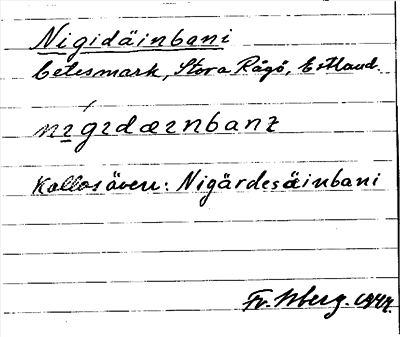 Nigidäinbani
betesmark, Stora Rågö, Estland.
nɪgɪdæɪnbanɪ
Kallas även: Nigärdesäinbani
Fr.